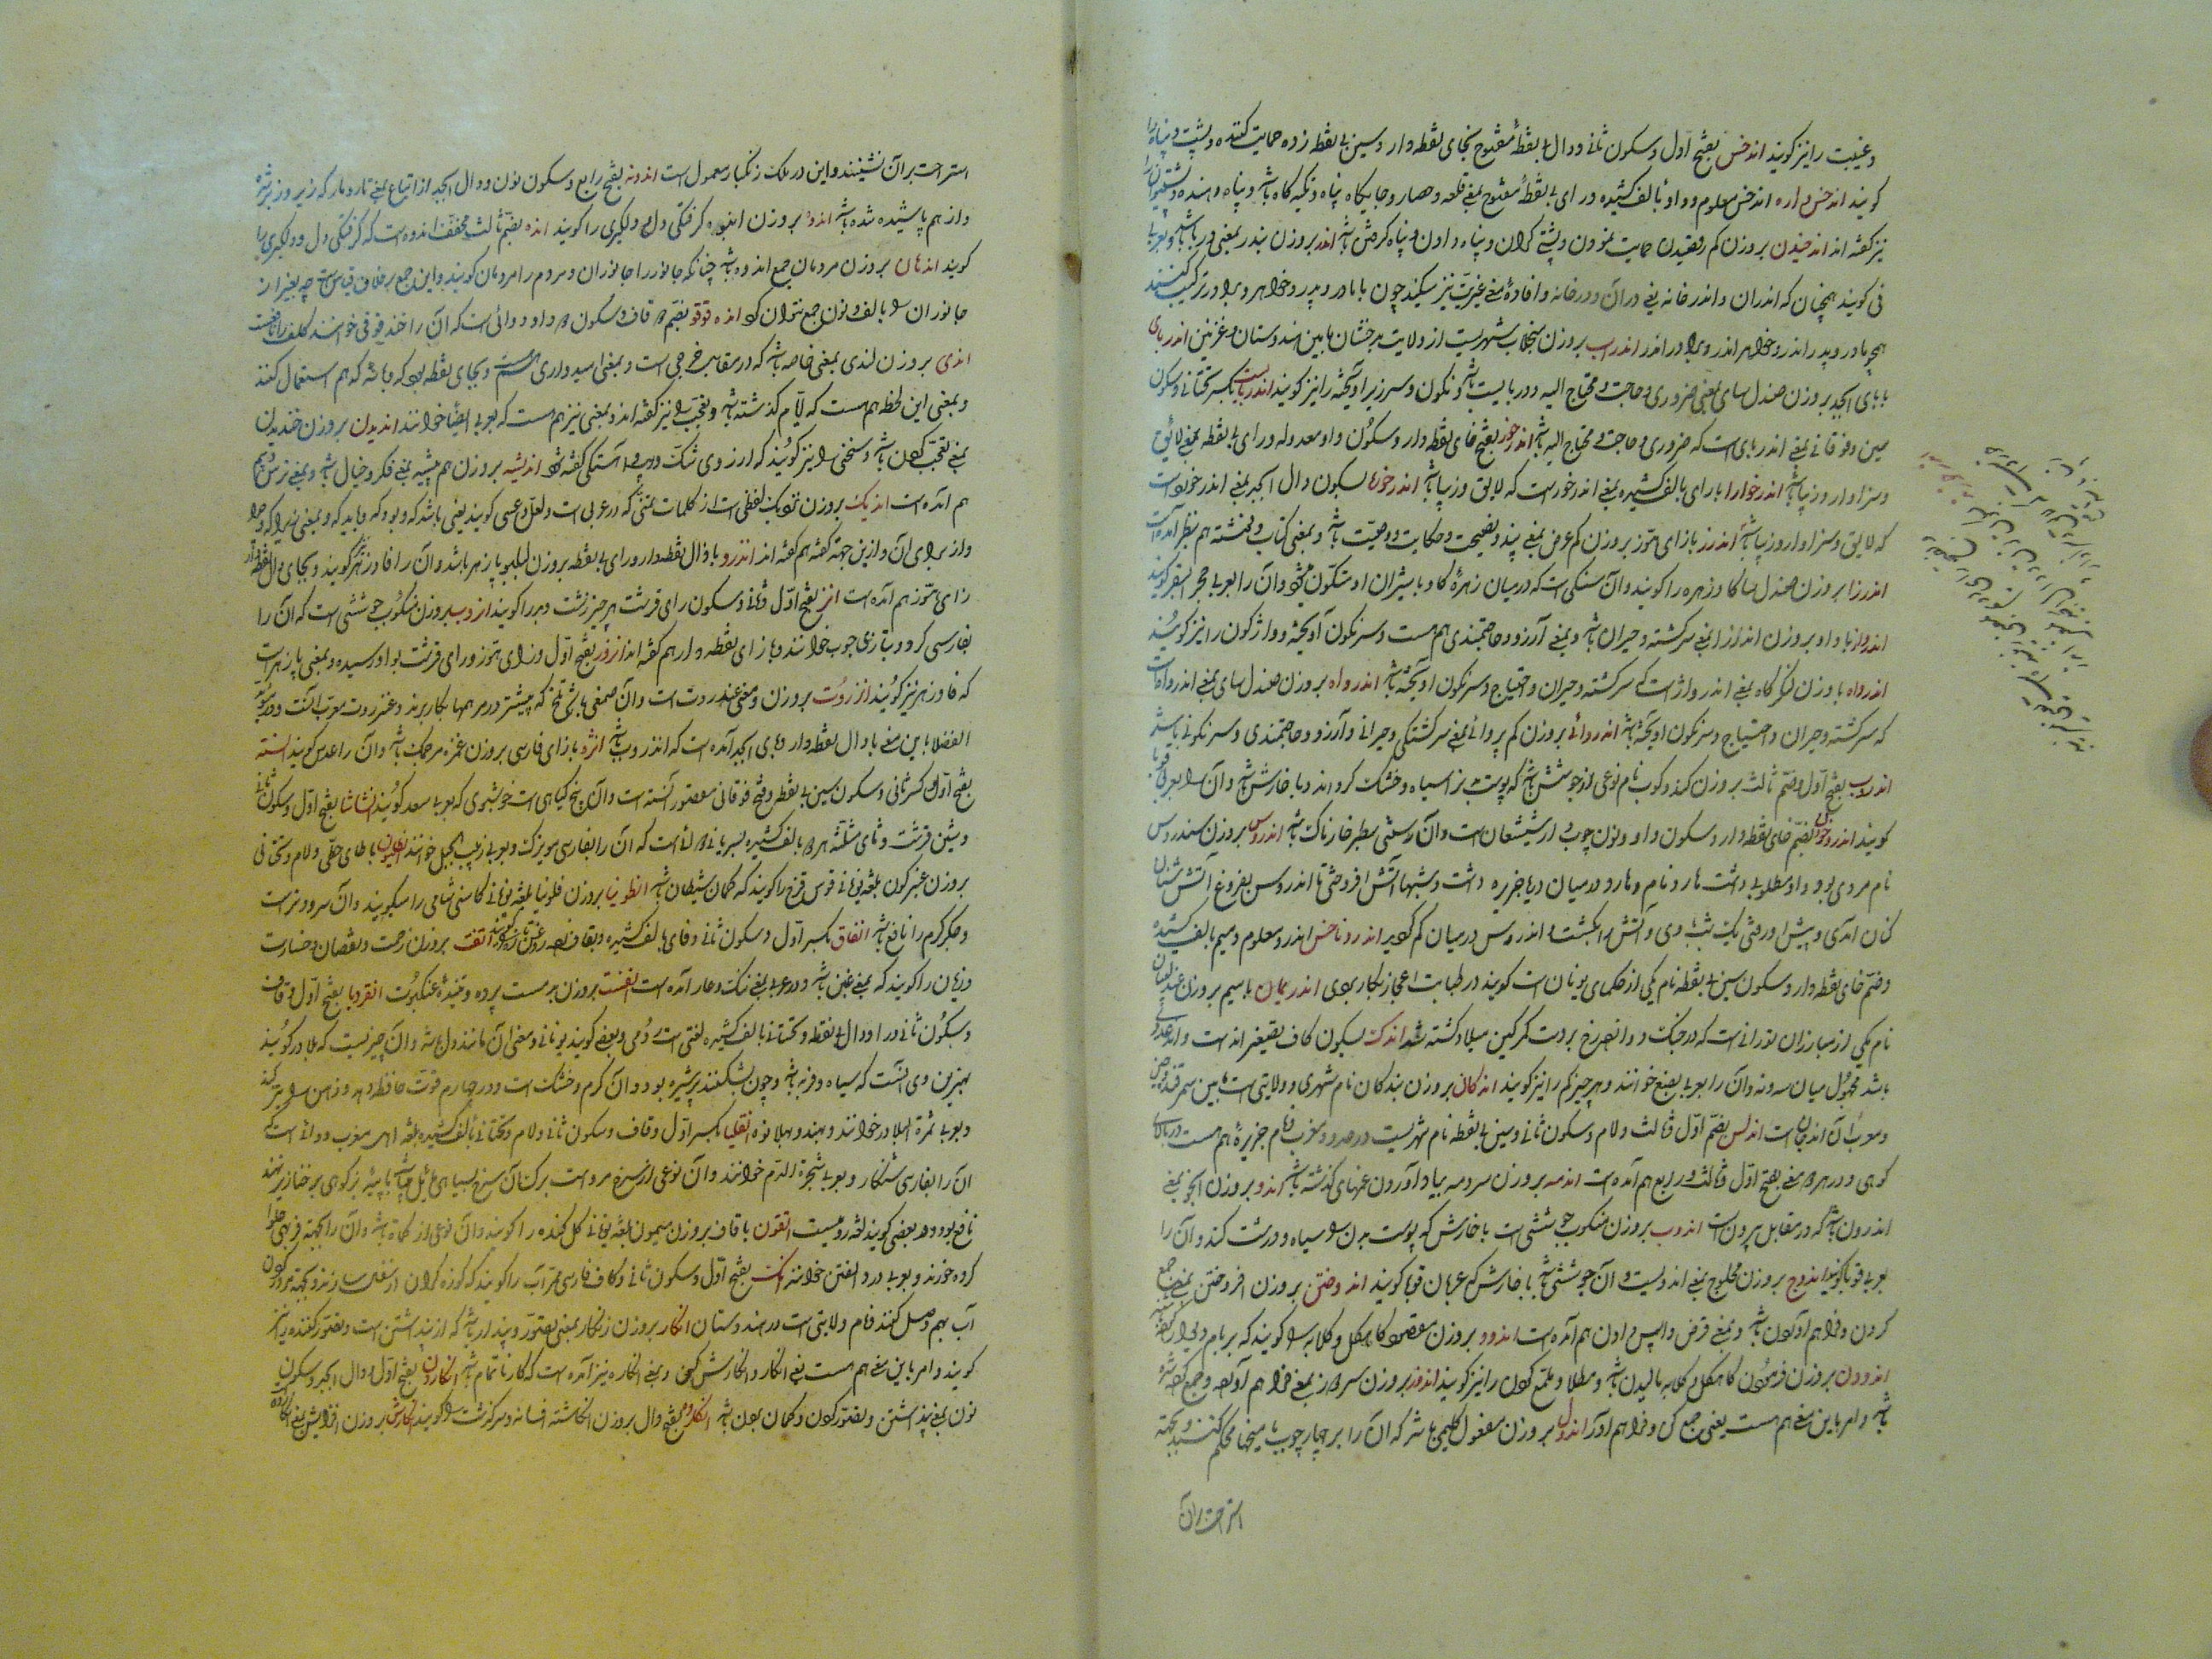 وغیبت را نیز کویند اندخس بفتح اول وسکون ثانی ودال بی نقطهٔ مفتوح بخای نقطه دار وسین بی نقطه زده حمایت کننده وپشت وپناه را
کویند اندخسواره اندخس معلوم وواو بالف کشیده ورای بی نقطهٔ مفتوح بمعنی قلعه وحصار وجایکاه پناه وتکیه کاه باشد وپناه دهنده وپشتیوان را
نیز کفته اند اندخسیدن بروزن کم رقصیدن حمایت نمودن وپشتی کردن وپناه دادن وپناه کرفتن باشد اندر بروزن بندر بمعنی در باشد وبعربی
فی کویند همچنان که اندران واندرخانه یعنی دران ودرخانه وافادهٔ معنی غیریت نیز میکند چون با مادر وپدر وخواهر وبرادر ترکیب کنند
همچو مادر وپدر اندر وخواهر اندر وبرادر اندر اندراب بروزن سنجاب شهریست از ولایت بدخشان مابین هندوستان وغزنین اندربای
با بای ابجد بروزن صندل سای یعنی ضروری وحاجت ومحتاج الیه ودربایست باشد ونکون وسرزیر آویخته را نیز کویند اندربایست بکسر تحتانی وسکون
سین وفوقانی بمعنی اندربای است که ضروری وحاجت ومحتاج الیه باشد اندرخور بفتح خای نقطه دار وسکون واو معدوله ورای بی نقطه بمعنی لایق
وسزاوار وزیبا باشد اندرخورا با رای بالف کشیده بمعنی اندرخورست که لایق وزیبا باشد اندرخورد بسکون دال ابجد بمعنی اندرخورست
که لایق وسزاوار وزیبا باشد اندرز با زای هوز بروزن کم عرض بمعنی پند ونصیحت وحکایت ووصیت باشد وبمعنی کتاب ونوشته هم بنظر آمده است
اندرزا بروزن صندل سا کاو زهره را کویند وآن سنکی است که درمیان زهرهٔ کاو یا شیردان او متکون میشود وآن را بعربی حجر البقر کویند
اندروا با واو بروزن اندازا بمعنی سرکشته وحیران باشد وبمعنی آرزو وحاجتمندی هم هست وسرنکون آویخته وواژکون را نیز کویند
اندرواه با وزن لنکرکاه بمعنی اندروا است که سرکشته وحیران واحتیاج وسرنکون آویخته باشد اندروای بروزن صندل سای بمعنی اندرواه است
که سرکشته وحیران واحتیاج وسرنکون آویخته باشد اندروائی بروزن کم پروائی بمعنی سرکشتکی وحیرانی وآرزو وحاجتمندی وسرنکونی باشد
اندروب بفتح اول وضم ثالث بروزن نام نوعی از جوشش باشد که پوست بدن سیاه وخشک کرداند وبا خارش باشد وآن را بعربی قوبا
کویند اندروخون بضم خای نقطه دار وسکون واو ونون چوب دارشیشعان است وآن رستنی سطبر خارناک باشد اندروس بروزن سندروس
نام مردی بود واو مطلوبی داشت هارو نام وهارو درمیان دریا جزیره داشت وشبها آتش افروختی تا اندروس بفروغ آتش شناکنان
کنان آمدی وپیش او رفتی یک شب وی وآتش بکشت واندروس درمیان کم کردید اندروماخس اندرو معلوم ومیم بالف کشیده
وفتح خای نقطه دار وسکون سین بی نقطه نام یکی از حکمای یونان است کویند در طبابت اعجاز بکار بردی اندریمان با میم بروزن عندلیبان
نام یکی از مبارزان تورانی است که در جنک دوازده رخ بر دست کرکین میلاد کشته شد اندک بسکون کاف تصغیر اند است
باشد مجهول میان سه ونه وآن را بعربی بضع خوانند وهر چیز کم را نیز کویند اندکان بروزن بندکان نام شهری وولایتی است مابین سمرقند وچین
ومعرب آن اندجان است اندلس بضم اول وثالث ولام وسکون ثانی وسین بی نقطه نام شهریست در حدود مغرب ونام جزیرهٔ هم هست
کوهی ودر بمعنی بفتح اول وثالث ورابع هم آمده است اندمه بروزن سردمه بیاد آوردن غمهای کذشته باشد اندو بروزن بمعنی
اندرون باشد که در مقابل بیرون است اندوب بروزن منکوب جوششی است با خارش که پوست بدن را سیاه ودرشت کند وآن را
بعربی قوبا کویند اندوج بروزن محلوج بمعنی اندوبست وآن جوششی باشد با خارش که عربان قوبا کویند اندوختن بروزن افروختن بمعنی جمع
کردن وفراهم آوردن باشد وبمعنی قرض واپس دادن هم آمده است اندود بروزن مقصود کاهکل وکلابه را کویند که بر بام ودیوار
اندودن بروزن فرمودن کاهکل وکلابه مالیدن باشد ومطلا وملمع کردن را نیز کویند اندوز بروزن بمعنی فراهم آورده وجمع کرده شده
باشد وامر باین معنی هم هست یعنی جمع کن وفراهم آور اندول بروزن مفعول کلیمی باشد که آن را بر چهار چوب با میخها محکم کنند وبجهت
استراحت بران
استراحت بران نشینند واین در ملک زنکبار معمول است اندوند بفتح رابع وسکون نون ودال ابجد از اتباع بمعنی تار ومار که زیر وزبر شده
واز هم پاشیده شده باشد اندوه بروزن انبوه کرفتکی دل ودلکیری را کویند انده بضم ثالث مخفف اندوه است که کرفتکی دل ودلکیری را
کویند اندهان بروزن مردمان جمع انده باشد چنانکه جانور را جانوران ومردم را مردمان کویند واین جمع برخلاف قیاس است چه بغیر از
جانوران را بالف ونون جمع نتوان کرد انده قوقو بضم دو قاف وسکون دو واو دوائی است که آن را حندقوقی خوانند کلف را نافع است
اندی بروزن لندی بمعنی خاصه باشد که در مقابل خرجی است وبمعنی امیدواری هست وبجای لفظ بود که وباشد که هم استعمال کنند
وبمعنی این لحظه هم هست که ایام کذشته باشد وتعجب را نیز کفته اند وبمعنی نیز هم هست که بعربی ایضا خوانند اندیدن بروزن خندیدن
بمعنی تعجب کردن باشد وسخنی را نیز کویند که از روی شک وریب وآهستکی کفته شود اندیشه بروزن هم پیشه بمعنی فکر وخیال باشد وبمعنی ترس وبیم
هم آمده است اندیک بروزن نزدیک لفظی است از کلمات تمنی که در عربی است ولعل وعسی کویند یعنی باشد که وبود که وباید که وبمعنی زیرا که وچرا
واز برای آن وازین جهة کفته هم کفته اند انذرو با ذال نقطه دار ورای بی نقطه بروزن بلبلو پازهر باشد وآن را فاد زهر کویند وبجای ذال نقطه دار
زای هوز هم آمده است انر بفتح اول وثانی وسکون رای قرشت هر چیز زشت وبد را کویند انروب بروزن منکوب جوششی است که آن را
بفارسی کر وبتازی جرب خوانند وبا زای نقطه دار هم کفته اند انزرو بفتح اول وزای هوز ورای قرشت بواو رسیده بمعنی پازهر است
که فاد زهر نیز کویند انزروت بروزن ومعنی عندروت است وآن صمغی باشد تلخ که بیشتر در مرهمها بکار برند وعنزروت معرب آنست
الفضلا باین معنی با دال نقطه دار وبای ابجد آمده است که انذروب باشد انژه با زای فارسی بروزن غمزه مرجمک باشد وآن را عدس کویند انسته
بفتح اول وکسر ثانی وسکون سین بی نقطه وفتح فوقانی مقصور آنسته است وآن بیخ کیاهی است خوشبوی که بعربی سعد کویند انشاثا بفتح اول وسکون ثانی
وشین قرشت وثای مثلثه هر دو بالف کشیده بسریانی دوائی است که آن را بفارسی مویزک وبعربی زبیب الجبل خوانند انطلیون با طای حطی ولام وتحتانی
بروزن عنبرکون بلغت یونانی قوس قزح را کویند که کمان شیطان باشد انطونیا بروزن فلونیا بلغت یونانی کاسنی شامی را میکویند وآن سرد وتر است
وجکر کرم را نافع باشد انفاق بکسر اول وسکون ثانی وفای بالف کشیده وبقاف زده روغن زیتون را کویند انفت بروزن زحمت ونقصان وخسارت
وزیان را کویند که بمعنی غبن باشد ودر عربی بمعنی ننک وعار آمده است انفست بروزن سرمست پرده وتنیدهٔ عنکبوت انقردیا بفتح اول وقاف
وسکون ثانی ورا ودال بی نقطه وتحتانی بالف کشیده لغتی است رومی وبعضی کویند یونانی ومعنی آن مانند دل باشد وآن چیزیست که بلادر کویند
بهترین وی آنست که سیاه وفربه باشد وچون بشکنند پر شیره بود وآن کرم وخشک است در درجه چهارم قوت حافظه دهد وذهن را تیز کند
وبعربی ثمرة البلادر خوانند وبهندی بهلانوه انقلیا بکسر اول وقاف وسکون ثانی ولام وتحتانی بالف کشیده بلغت اهل مغرب دوائی است که
آن را بفارسی شنکار وبعربی شجرة الدم خوانند وآن نوعی از سرخ مرد است برک آن سرخ بسیاهی مایل باشد با پیه بز کوهی بر خنازیر نهند
نافع بود وبعضی کویند لغت رومیست انقون با قاف بروزن میمون بلغت یونانی کل کنده را کویند وآن نوعی از کماة باشد وآن را بجهت فربهی حلوا
کرده خورند وبعربی ورد المنتن خوانند انک بفتح اول وسکون ثانی وکاف فارسی متراب را کویند که کوزه کران از سفال سازند وبجهت مرور
آب بهم وصل کنند ونام ولایتی است در هندوستان انکار بروزن زنکار بمعنی تصور وپندار باشد که از پنداشتن است وتصور کننده را نیز
کویند وامر باین معنی هم هست یعنی انکار وانکارش کن وبمعنی انکاره نیز آمده است که کار ناتمام باشد انکاردن بفتح اول ودال ابجد وسکون
نون بمعنی پنداشتن وتصور کردن وکمان بردن باشد انکارده بفتح دال بروزن انکاشته افسانه وسرکذشت را کویند انکارش بروزن افزایش بمعنی انکاره